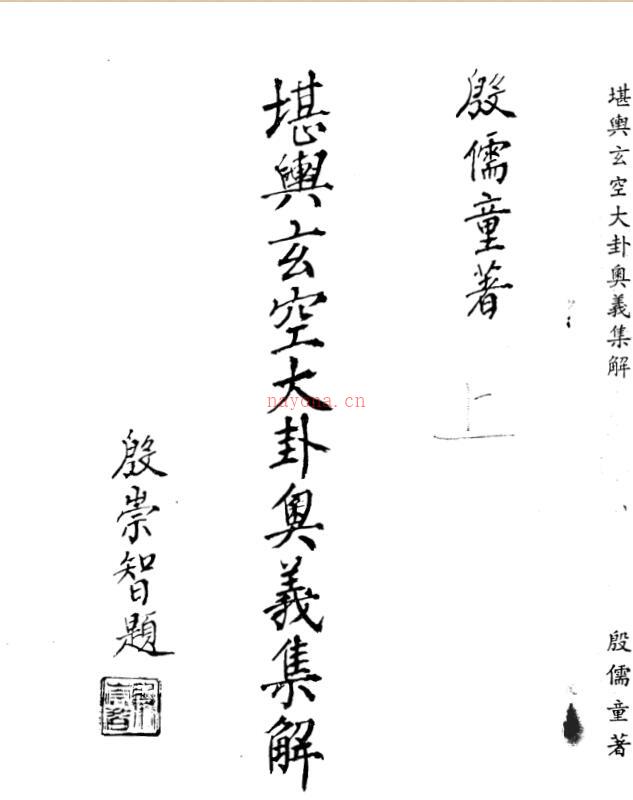 堪輿玄空大卦奧義集解
殷儒童著
殷儒童著
上
堪輿玄空大卦奧義集解
殷崇智題
nayona.cn